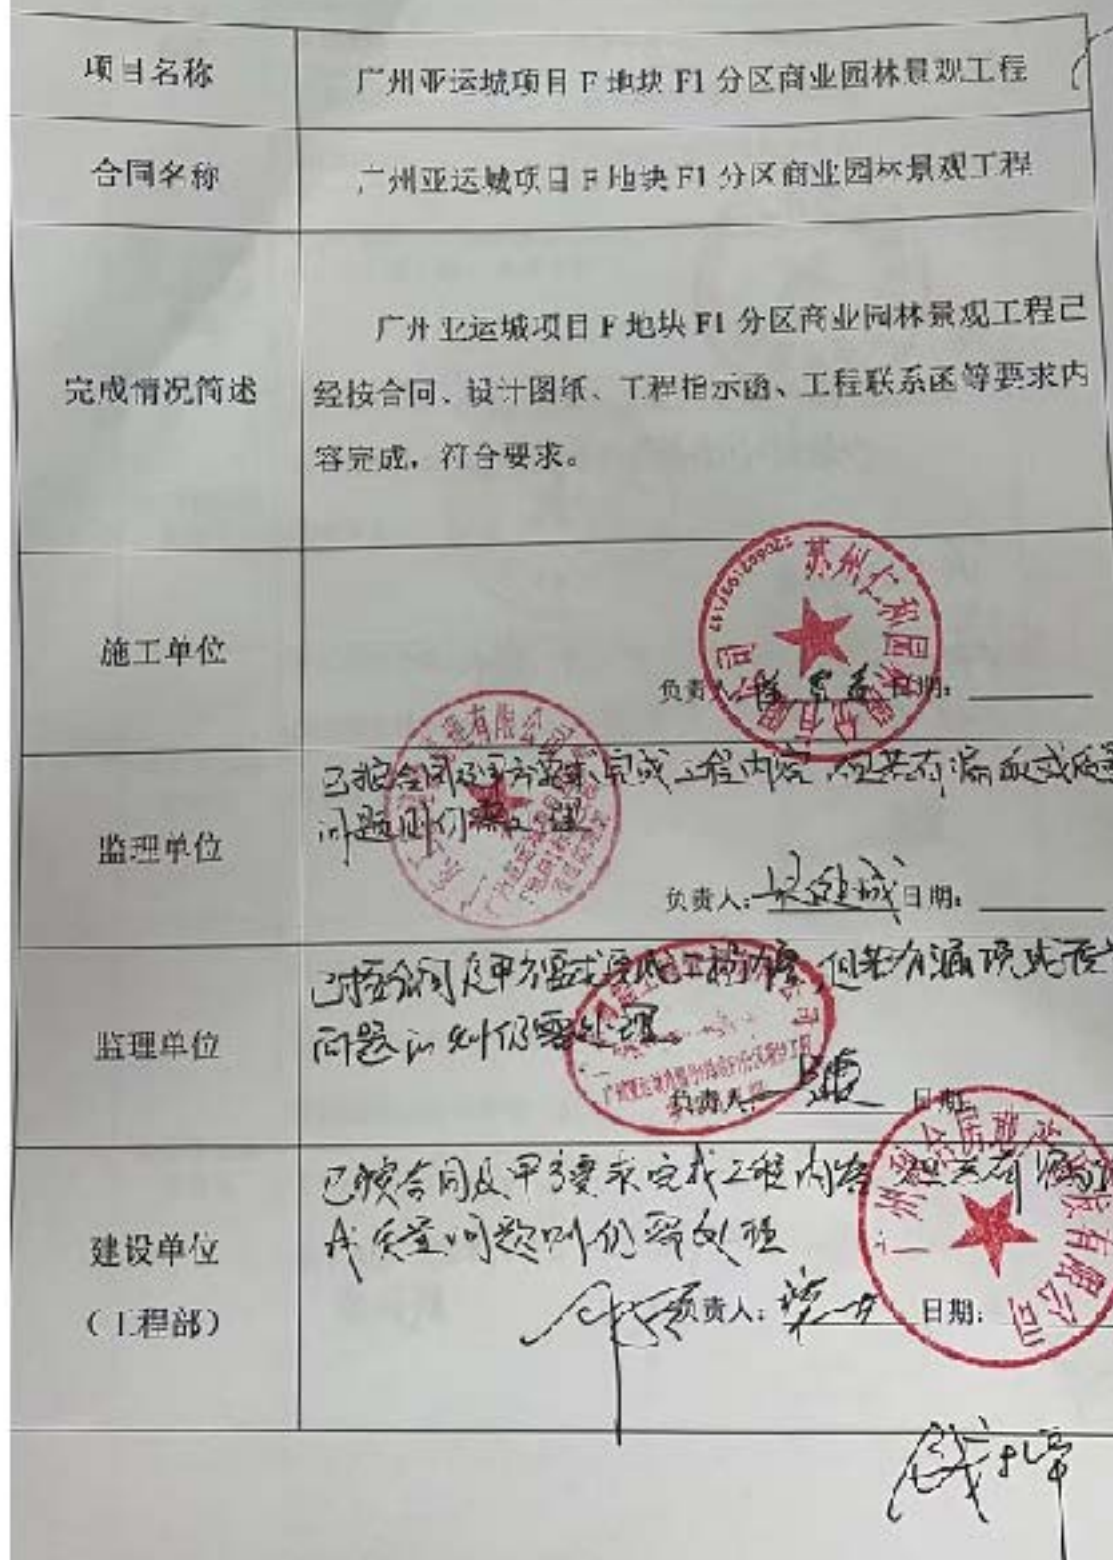 项目名称
广州亚运城项目F地块F1分区商业园林景观工程
合同名称
广州亚运城项目F地块F1分区商业园林景观工程
完成情况简述
广州亚运城项目F地块F1分区商业园林景观工程已
经按合同、设计图纸、工程指示函、工程联系函等要求内
容完成，符合要求。
施工单位
苏州仁和园林股份有限公司
负责人 日期：
监理单位
已按合同及甲方要求完成工程内容，但若有漏项或质量
问题则仍需处理
负责人： 日期：
监理单位
已按合同及甲方要求完成工程内容，但若有漏项或质量
问题 则仍需处理。
负责人： 日期：
建设单位
（工程部）
已按合同及甲方要求完成工程内容 但若有漏项
或质量问题则仍需处理
负责人： 日期：